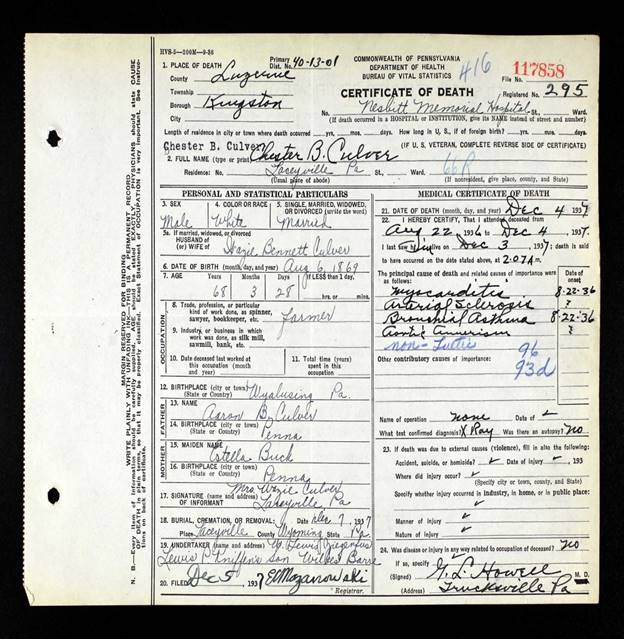 HVS-5—200M—9-36
COMMONWEALTH OF PENNSYLVANIA
DEPARTMENT OF HEALTH
BUREAU OF VITAL STATISTICS
CERTIFICATE OF DEATH
416
117858
File No.
Registered No. 295
Primary Dist. No. 40-13-01
1. PLACE OF DEATH
County Luzerne
Township
Borough Kingston
City
No. Nesbitt Memorial Hospital St. Ward
(If death occurred in a HOSPITAL or INSTITUTION, give its NAME instead of street and number)
Length of residence in city or town where death occurred yrs. mos. days. How long in U. S., if of foreign birth? yrs. mos. days.
Chester B. Culver
(IF U. S. VETERAN, COMPLETE REVERSE SIDE OF CERTIFICATE)
2. FULL NAME (type or print) Chester B. Culver
Residence: No. Laceyville Pa St., Ward.
(Usual place of abode)
(If nonresident, give place, county, and State)
PERSONAL AND STATISTICAL PARTICULARS
3. SEX Male
4. COLOR OR RACE White
5. SINGLE, MARRIED, WIDOWED, OR DIVORCED (write the word) Married
5a. If married, widowed or divorced
HUSBAND of
(or) WIFE of Hazie Bennett Culver
6. DATE OF BIRTH (month, day, and year) Aug 6, 1869
7. AGE 68 3 28 If LESS than 1 day, hrs. or mins.
OCCUPATION
8. Trade, profession, or particular kind of work done, as spinner, sawyer, bookkeeper, etc. farmer
9. Industry, or business in which work was done, as silk mill, sawmill, bank, etc.
10. Date deceased last worked at this occupation (month and year)
11. Total time (years) spent in this occupation
12. BIRTHPLACE Wyalusing Pa.
(State or Country)
FATHER
13. NAME Aaron B. Culver
14. BIRTHPLACE (city or town) Penna
(State or Country)
MOTHER
15. MAIDEN NAME Estella Buck
16. BIRTHPLACE (city or town) Penna
(State or Country)
17. SIGNATURE (name and address) OF INFORMANT Mrs Culver Laceyville Pa
18. BURIAL, CREMATION, OR REMOVAL: Date Dec 7, 1937
Place Laceyville County Wyoming State Pa.
19. UNDERTAKER (name and address) W. Lewis
Lewis P Kniffens Son Wilkes Barre
20. FILED Dec 5, 1937
Registrar.
MEDICAL CERTIFICATE OF DEATH
21. DATE OF DEATH (month, day, and year) Dec 4 1937
22. I HEREBY CERTIFY, That I attended deceased from
Aug 22, 1936 to Dec 4, 1937.
I last saw him on Dec 3, 1937; death is said
to have occurred on the date stated above, at 2:07 A m.
The principal cause of death and related causes of importance were as follows:
Date of onset
Myocarditis 8-22-36
Arterial Sclerosis ?
Bronchial Asthma 8-22-36
Aortic Aneurism ?
non-Luetic
96
93d
Other contributory causes of importance:
Name of operation none Date of
What test confirmed diagnosis? X Ray Was there an autopsy? no
23. If death was due to external causes (violence), fill in also the following:
Accident, suicide, or homicide? Date of injury 193
Where did injury occur?
(Specify city or town, county, and State)
Specify whether injury occurred in industry, in home, or in public place:
Manner of injury
Nature of injury
24. Was disease or injury in any way related to occupation of deceased? no
If so, specify
(Signed) G. L. Howell M. D.
(Address) Trucksville Pa
MARGIN RESERVED FOR BINDING
WRITE PLAINLY WITH UNFADING INK—THIS IS A PERMANENT RECORD